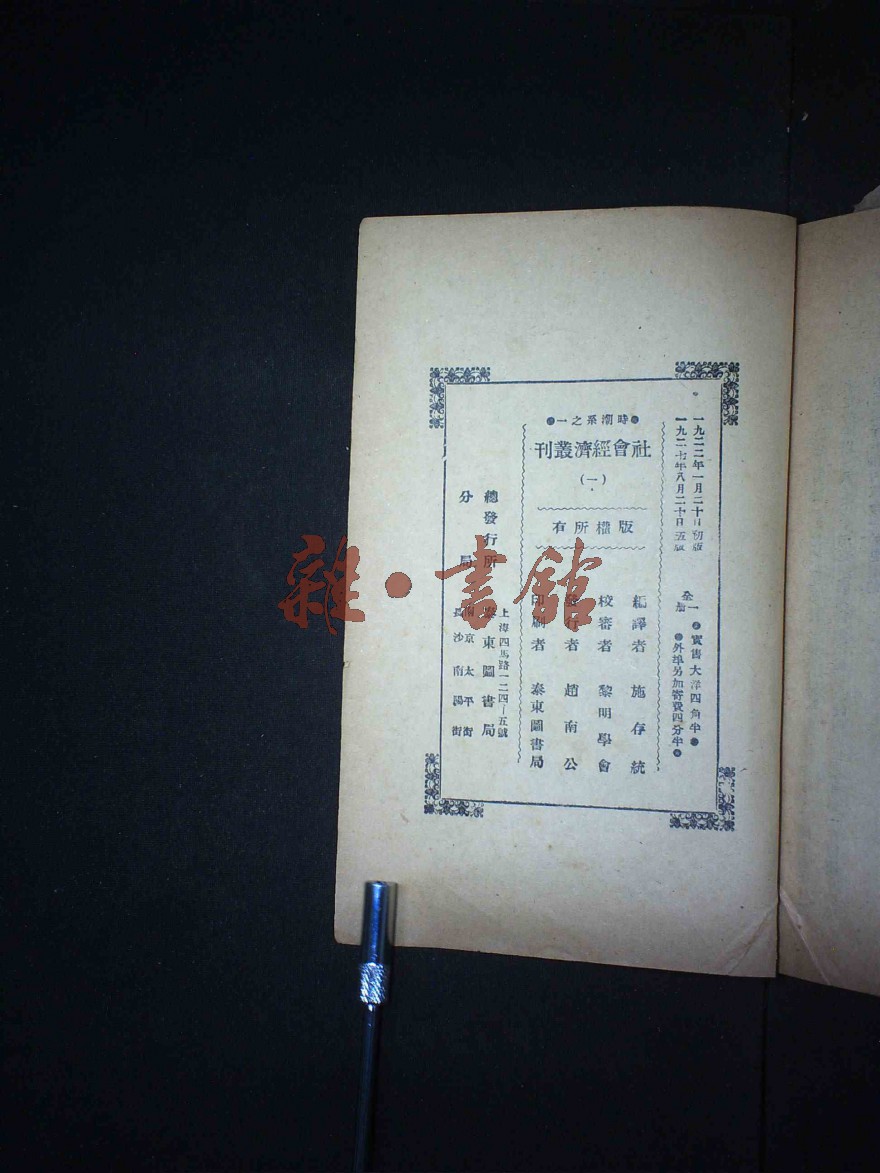 一九二二年一月二十日初版
一九二七年八月二十日五版
全一册
●實售大洋四角半●
●外埠另加寄費四分半●
●時潮系之一●
社會經濟叢刊
(一)
版權所有
編譯者 施存統
校審者 黎明學會
發行者 趙南公
印刷者 泰東圖書局
上海四馬路一二四—五號
總發行所 泰東圖書局
分局 南京太平街
長沙南陽街
雜·書館